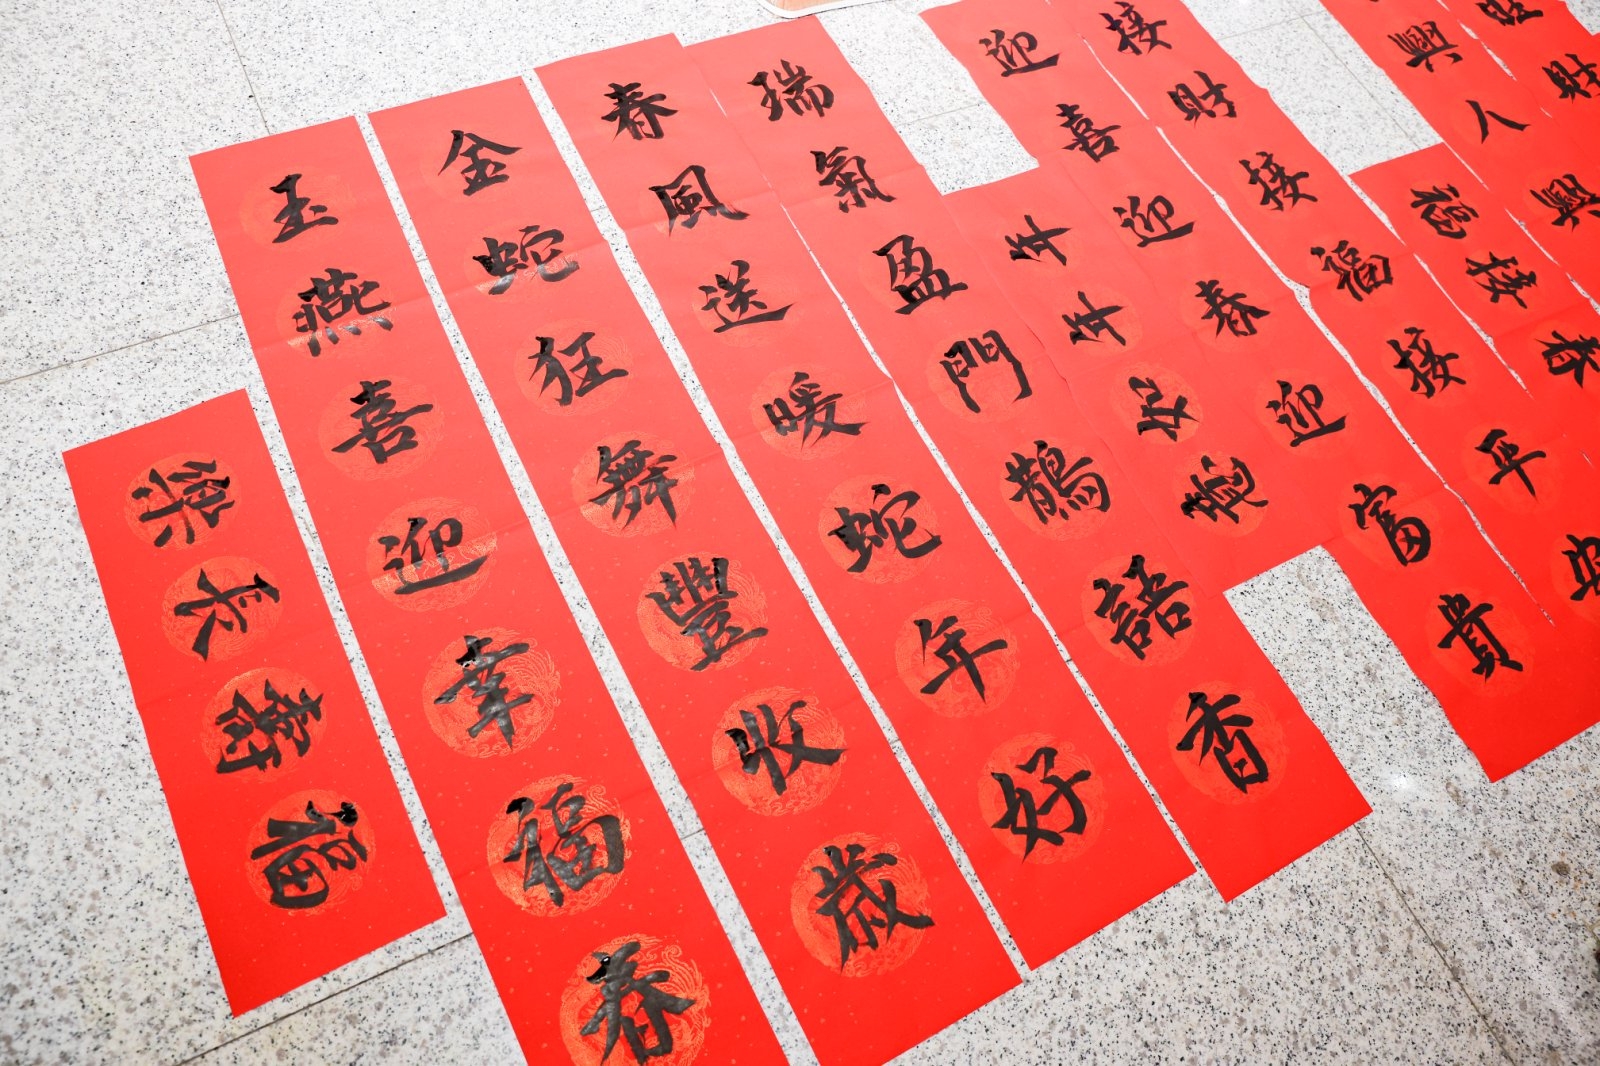 福壽長樂
玉燕喜迎幸福春
金蛇狂舞豐收歲
春風送暖蛇年好
瑞氣盈門鵲語香
年年如意
迎喜迎春迎富貴
接財接福接平安
春接福
興人興
旺財